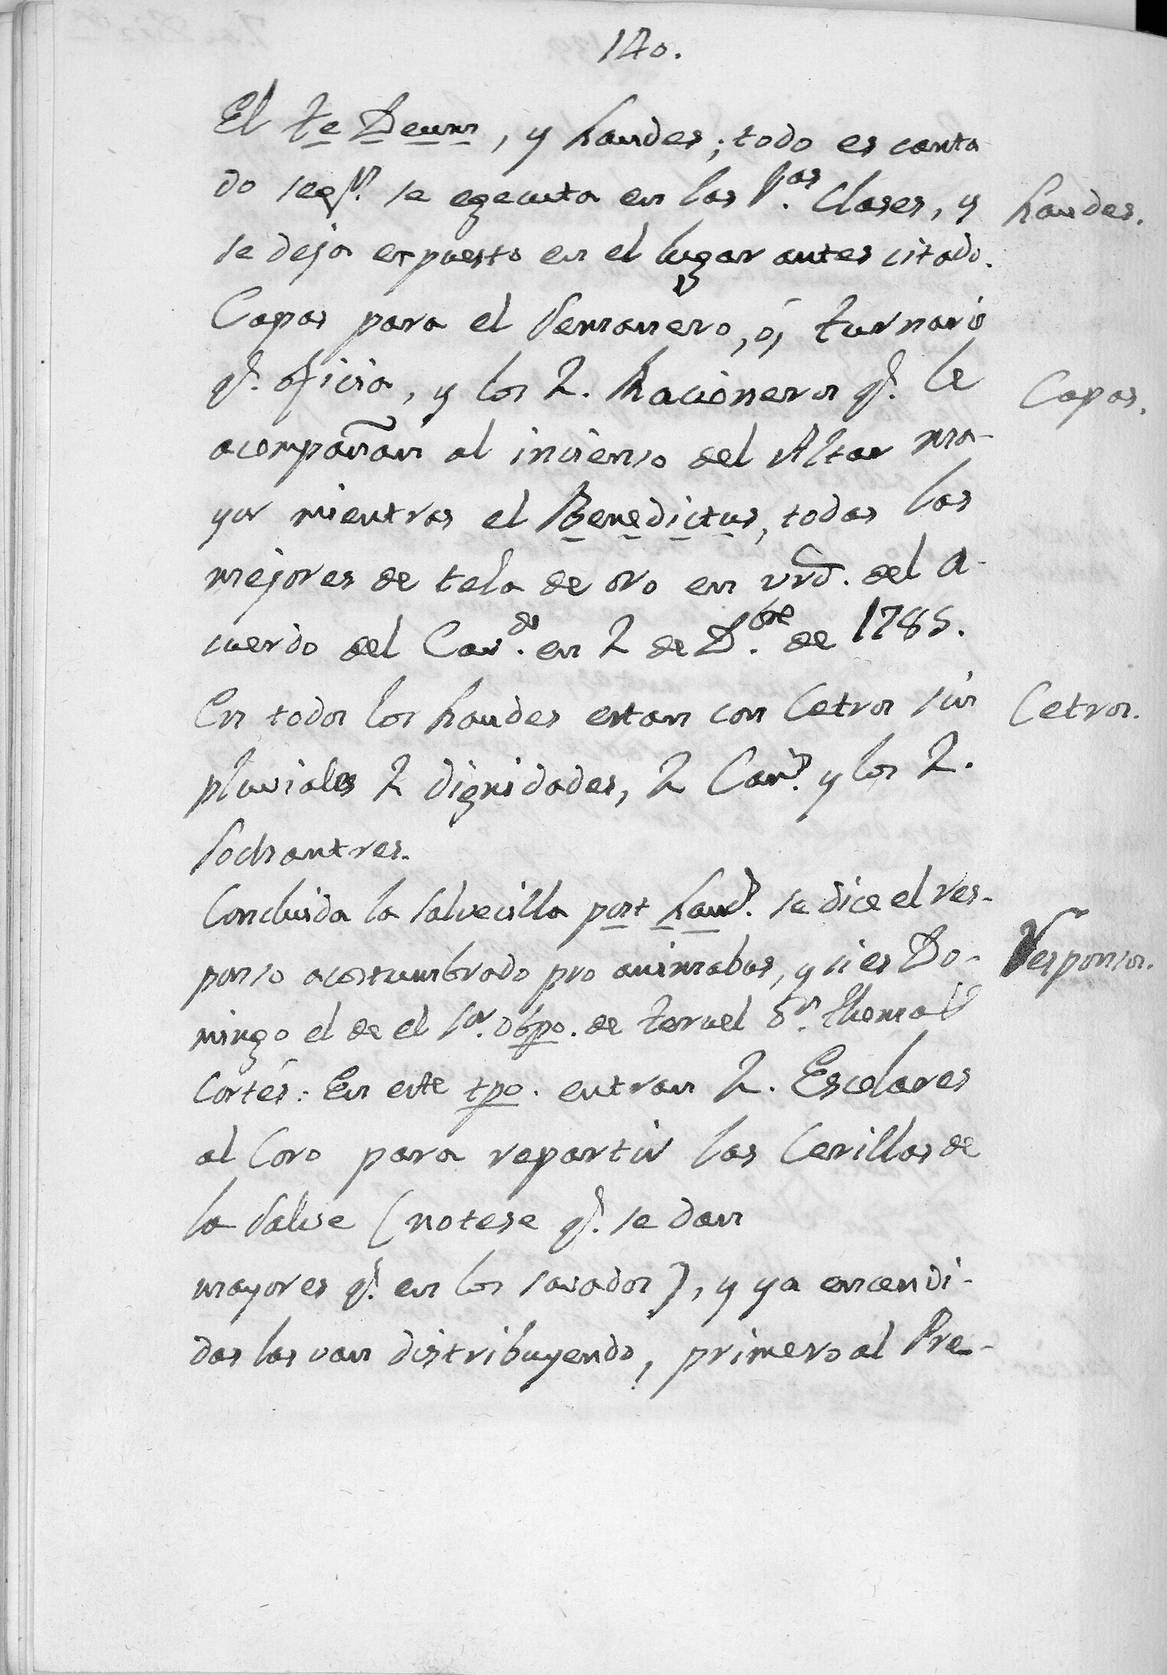 140.
El te Deum, y Laudes; todo es canta
do segn. se egecuta en las 1as. Clases, y
Laudes.
se deja expuesto en el lugar antes citado.
Capas para el Semanero, ó, turnario
qe. oficia, y los 2. Racioneros qe. le
Capas.
acompañan al incienso del Altar ma-
yor mientras el Benedictus, todas las
mejores de tela de oro en vrd. del a-
cuerdo del Cavdo. en 2 de Dbre. de 1785.
En todos los Laudes estan con Cetros sin
Cetros.
pluviales 2 dignidades, 2 Cans. y los 2.
Sochantres.
Concluida la salvecilla post Lauds. se dice el res-
ponso acostumbrado pro animabus, y si es Do-
Responsos.
mingo el de el Sor. Obpo. de Teruel Dn. Thomas
Cortés: En este tpo. entran 2. Escolares
al Coro para repartir las Cerillas de
la Salve (notese qe. se dan
mayores qe. en los savados), y ya encendi-
das las van distribuyendo, primero al Pre-